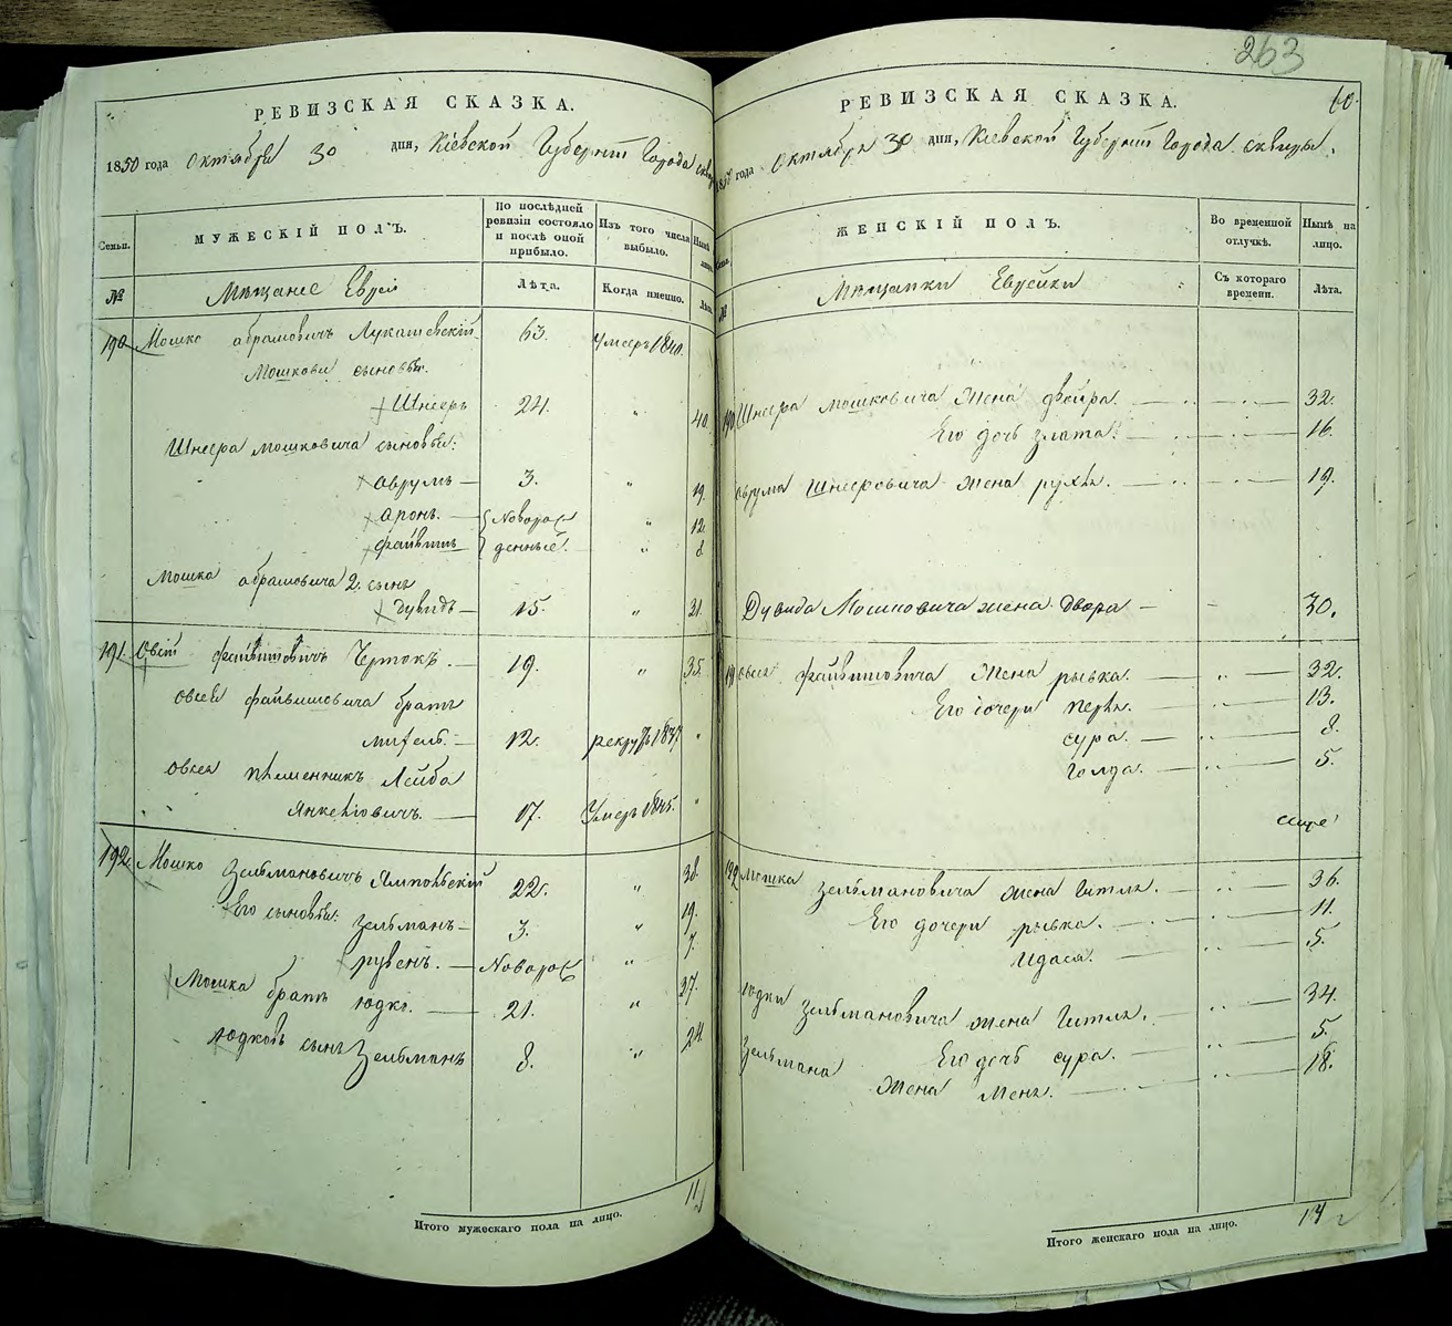 263
РЕВИЗСКАЯ СКАЗКА.
1850 года Октября 30 дня, Кіевской Губерніи Города
Семьи.
МУЖЕСКІЙ ПОЛЪ.
По послѣдней ревизіи состояло и послѣ оной прибыло.
Изъ того числа выбыло.
Нынѣ
№
Мѣщане Евреи
Лѣта.
Когда именно.
Лѣта
190 Мошко Абрамовичъ Лукашевскій 63. Умеръ 1840.
Мошкови сыновья.
Шнееръ 24. " 40.
Шнеера Мошковича сыновья:
Аврумъ — 3. " 19.
Аронъ. — Новорож " 12.
Файвишъ денные. " 8
Мошка Абрамовича 2. сынъ
Дувидъ — 15. " 31.
191. Овсей Файвишовичъ Чертокъ. — 19. " 35.
Овсея Файвишовича братъ
— 12. рекрутъ 1837 "
Овсея племенникъ Лейба
Янкелiовичъ. — 17. Умеръ 1845. "
192. Мошко Зельмановичъ Ямпольскій 22. " 38.
Его сыновья: Зельманъ — 3. " 19.
Рувенъ. — Новорож " 7.
Мошка братъ Юдко. — 21. " 37.
Юдковъ сынъ Зельманъ 8. " 24.
Итого мужескаго пола на лицо. 11
60.
РЕВИЗСКАЯ СКАЗКА.
1850 года Октября 30 дня, Кіевской Губерніи Города Сквиры.
Семьи
ЖЕНСКІЙ ПОЛЪ.
Во временной отлучкѣ.
Нынѣ на лицо.
№
Мѣщанки Еврейки
Съ котораго времени.
Лѣта.
190 Шнеера Мошковича жена Двойра. — .. — 32.
Его дочь Злата. — .. — 16.
Аврума Шнееровича жена Рухля. — .. — 19.
Дувида Мошковича жена Двора — - 30.
191 Овсея Файвишовича жена Рывка. — .. — 32.
Его дочери Перля. — .. — 13.
Сура. — .. — 8.
Голда. — .. — 5.
192 Мошка Зельмановича жена Гитля. — .. — 36.
Его дочери Рывка. — .. — 11.
Идася. — .. — 5.
Юдки Зельмановича жена Гитля. — .. — 34.
Его дочь Сура. — .. — 5.
Зельмана жена Меня. — .. — 18.
Итого женскаго пола на лицо. 14